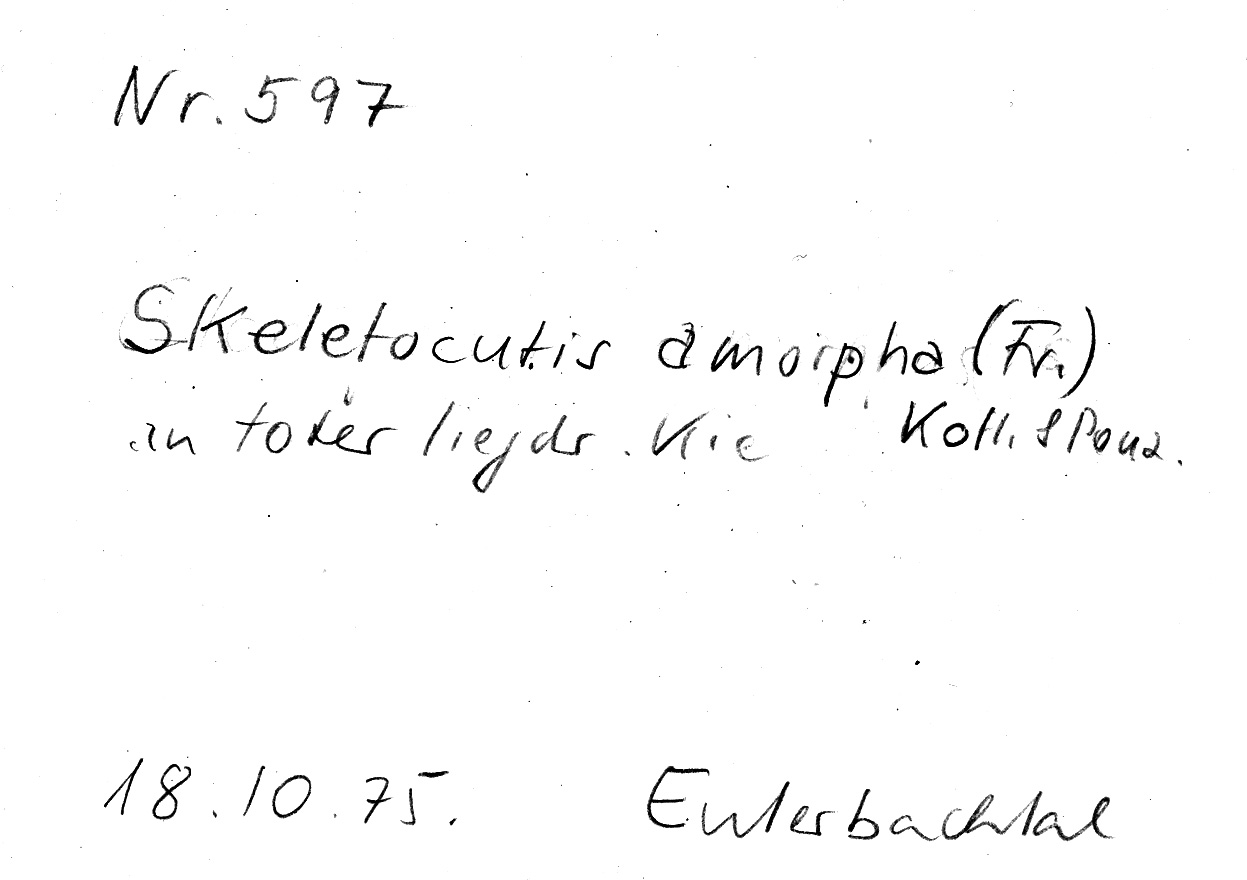 Nr. 597
Skeletocutis amorpha (Fr.)
an toter liegdr. Kie Kotl. & Pouz.
18.10.75. Eulerbachtal